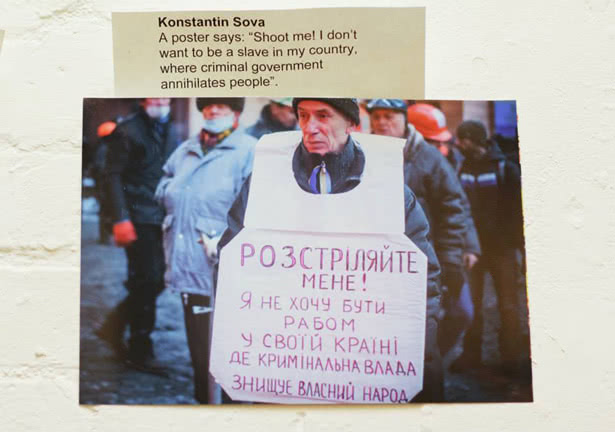 Konstantin Sova
A poster says: “Shoot me! I don’t
want to be a slave in my country,
where criminal government
annihilates people”.
РОЗСТРІЛЯЙТЕ
МЕНЕ!
Я НЕ ХОЧУ БУТИ
РАБОМ
У СВОЇЙ КРАЇНІ
ДЕ КРИМІНАЛЬНА ВЛАДА
ЗНИЩУЄ ВЛАСНИЙ НАРОД